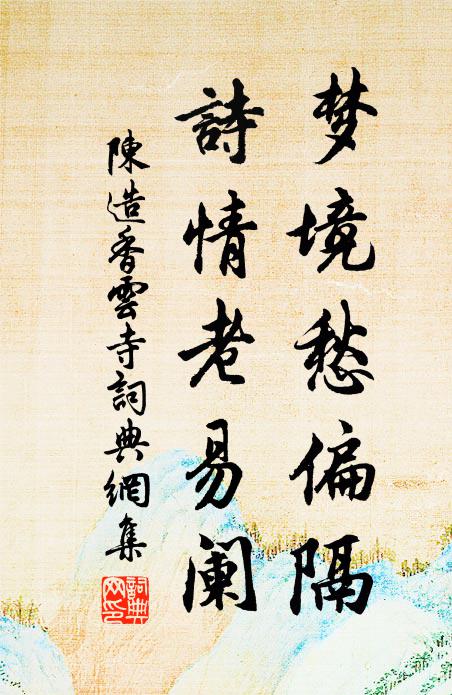 梦境愁偏隔
詩情老易阑
陳造香雲寺詞典網集
詞典
网印